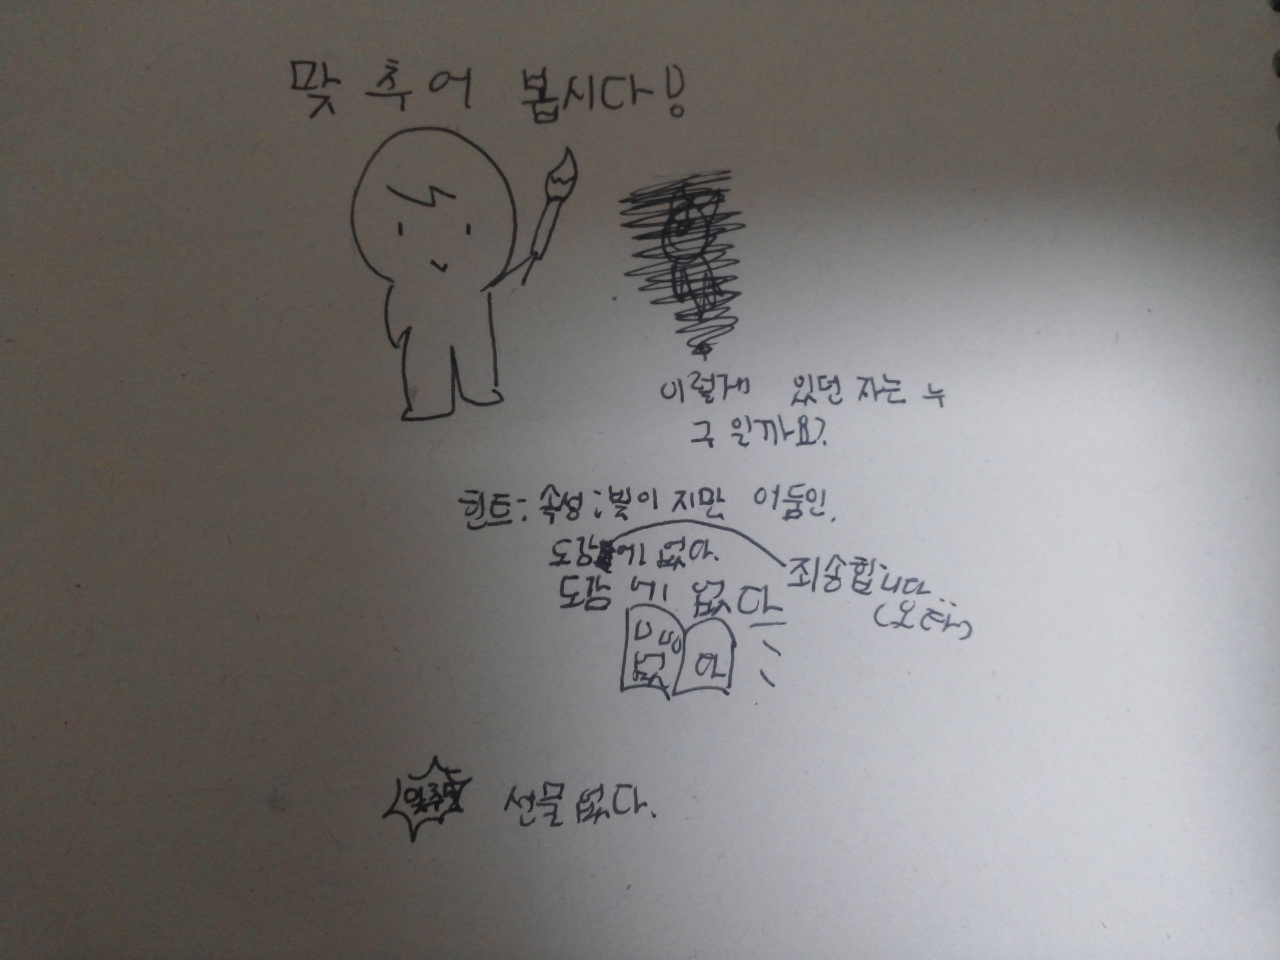 맞추어 봅시다!
이럴개 있던 자는 누
구 일까요?
힌트: 속성: 빛이 지만 어둠인.
도감에 없다.
도감에 없다
죄송합니다..
(오타)
없
다
선물 없다.